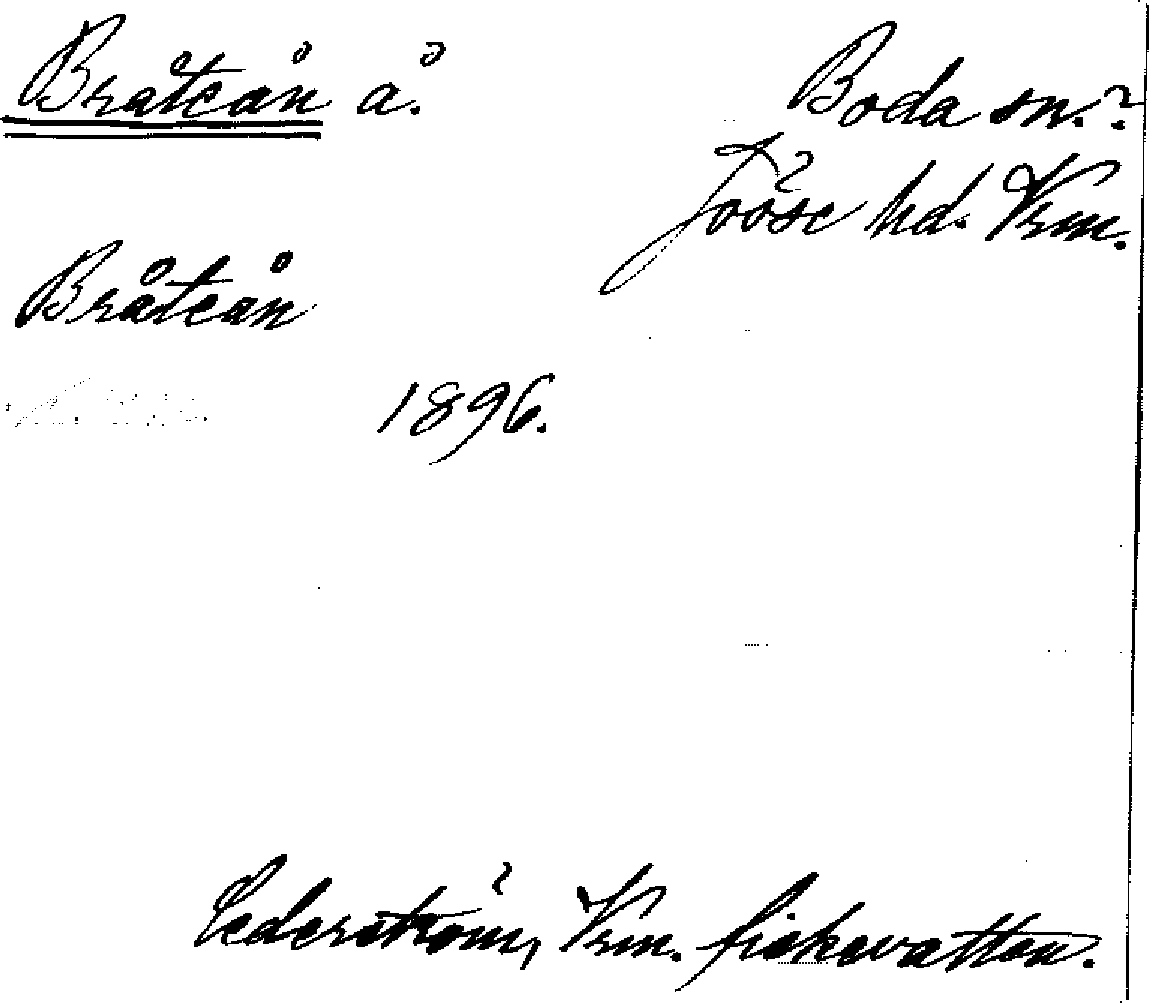 Bråteån å. Boda sn.?
Jösse hd. Vrm.
Bråteån
1896.
Cederström, Vrm. fiskevatten.